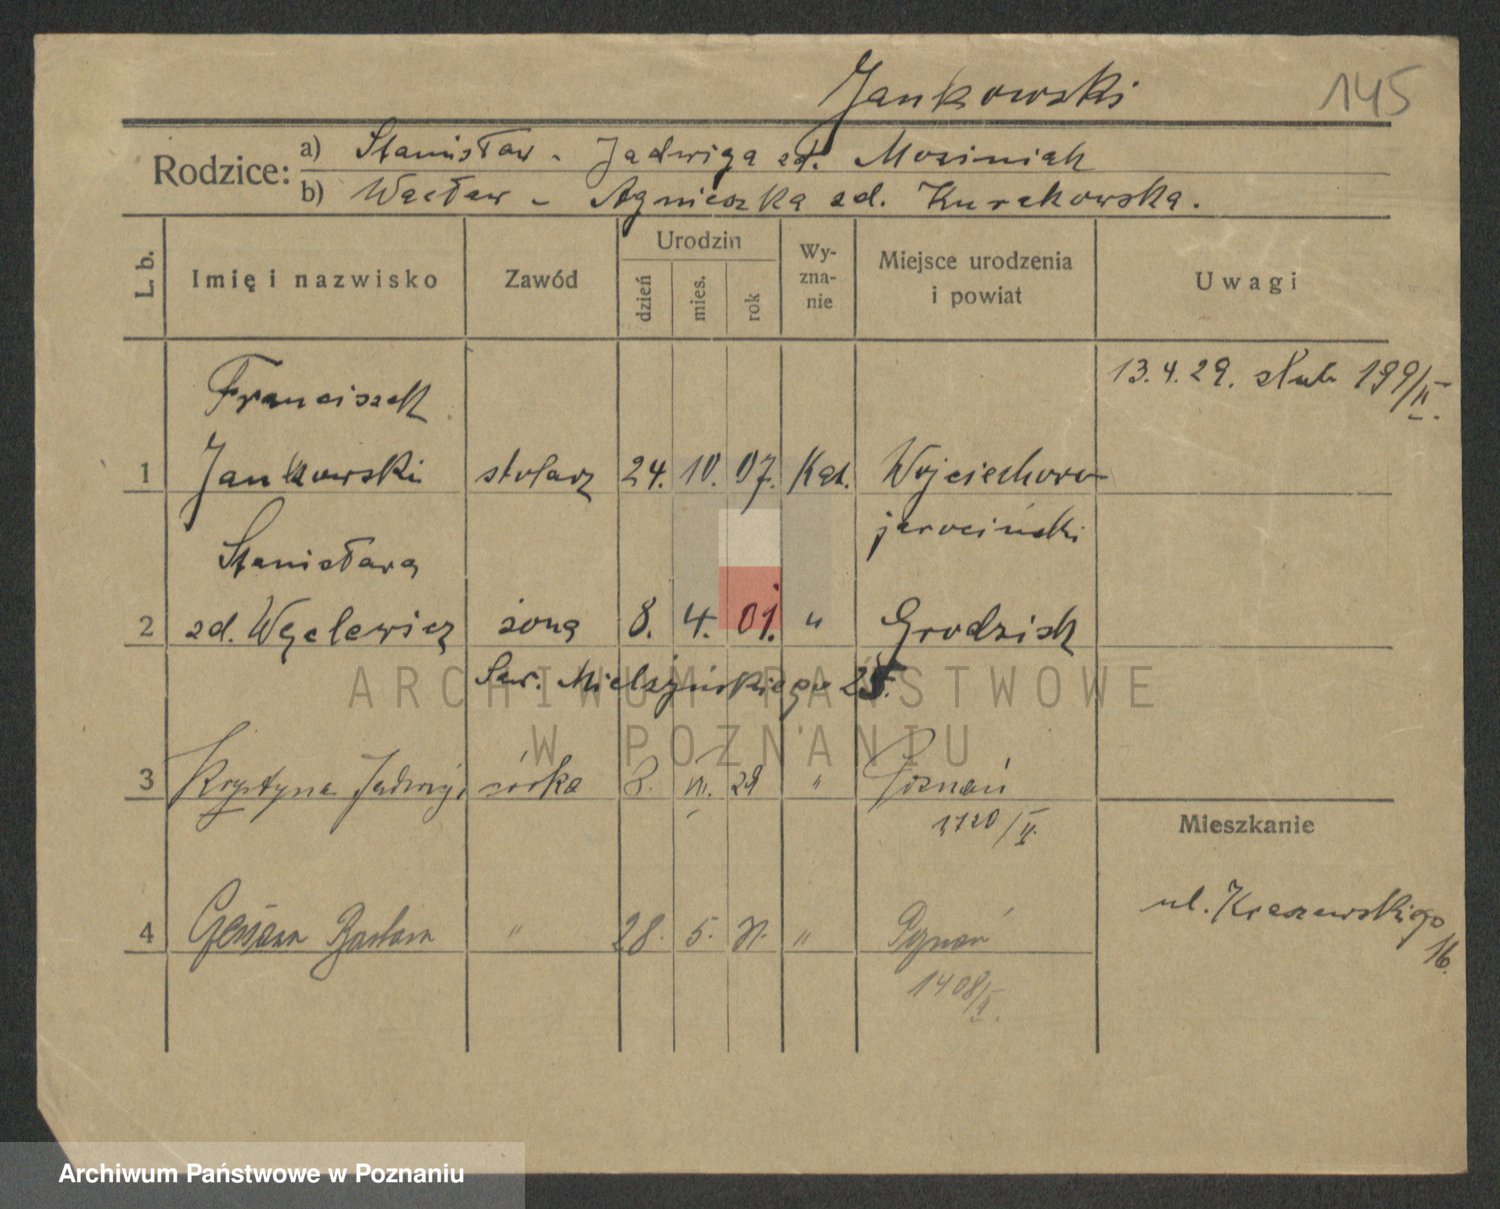 Jankowski
145
Rodzice:
a) Stanisław - Jadwiga zd. Moziniak
b) Wacław - Agnieszka zd. Kurekowska.
L. b.
Imię i nazwisko
Zawód
Urodzin
dzień
mies.
rok
Wy-
zna-
nie
Miejsce urodzenia
i powiat
Uwagi
13. 4. 29. ślub 199/II.
Franciszek
1 Jankowski stolarz 24. 10. 07. Kat. Wojciechowo
jarociński
Stanisława
2 zd. Węclewicz żona 8. 4. 01. " Grodzisk
Sew. Mielżyńskiego 25.
ARCHIWUM PAŃSTWOWE
W POZNANIU
3 Krystyna Jadwiga córka 8. VII. 29 " Poznań
1720/II.
Mieszkanie
ul. Kraszewskiego
16.
4 Barbara " 28. 5. 31. " Poznań
1408/II.
Archiwum Państwowe w Poznaniu